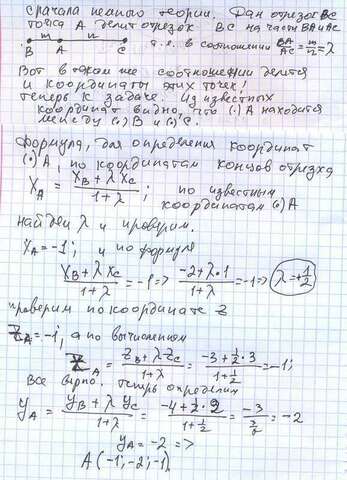 сначала немного теории. Дан отрезок BC
точка A делит отрезок BC на части BA и AC
m n
B A C
т.е. в соотношении BA/AC = m/n = λ
Вот в таком же соотношении делятся
и координаты этих точек!
теперь к задаче. Из известных
координат видно, что (·) A находится
между (·) B и (·) C.
Формула, для определения координат
(·) A, по координатам концов отрезка
X_A = (X_B + λ X_C)/(1 + λ); по известным
координатам (·) A
найдем λ и проверим.
X_A = -1; и по формуле
(X_B + λ X_C)/(1 + λ) = -1 => (-2 + λ·1)/(1 + λ) = -1 => λ = +1/2
проверим по координате z
z_A = -1; а по вычислением
z_A = (z_B + λ z_C)/(1 + λ) = (-3 + 1/2·3)/(1 + 1/2) = -1;
Все верно. Теперь определим
y_A = (y_B + λ y_C)/(1 + λ) = (-4 + 1/2·2)/(1 + 1/2) = -3/(3/2) = -2
y_A = -2 =>
A (-1; -2; -1)